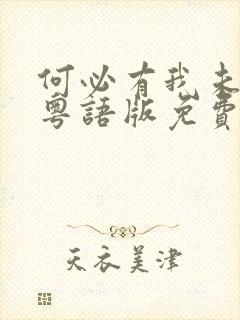 何必有我未
粵語版免費
天衣美津